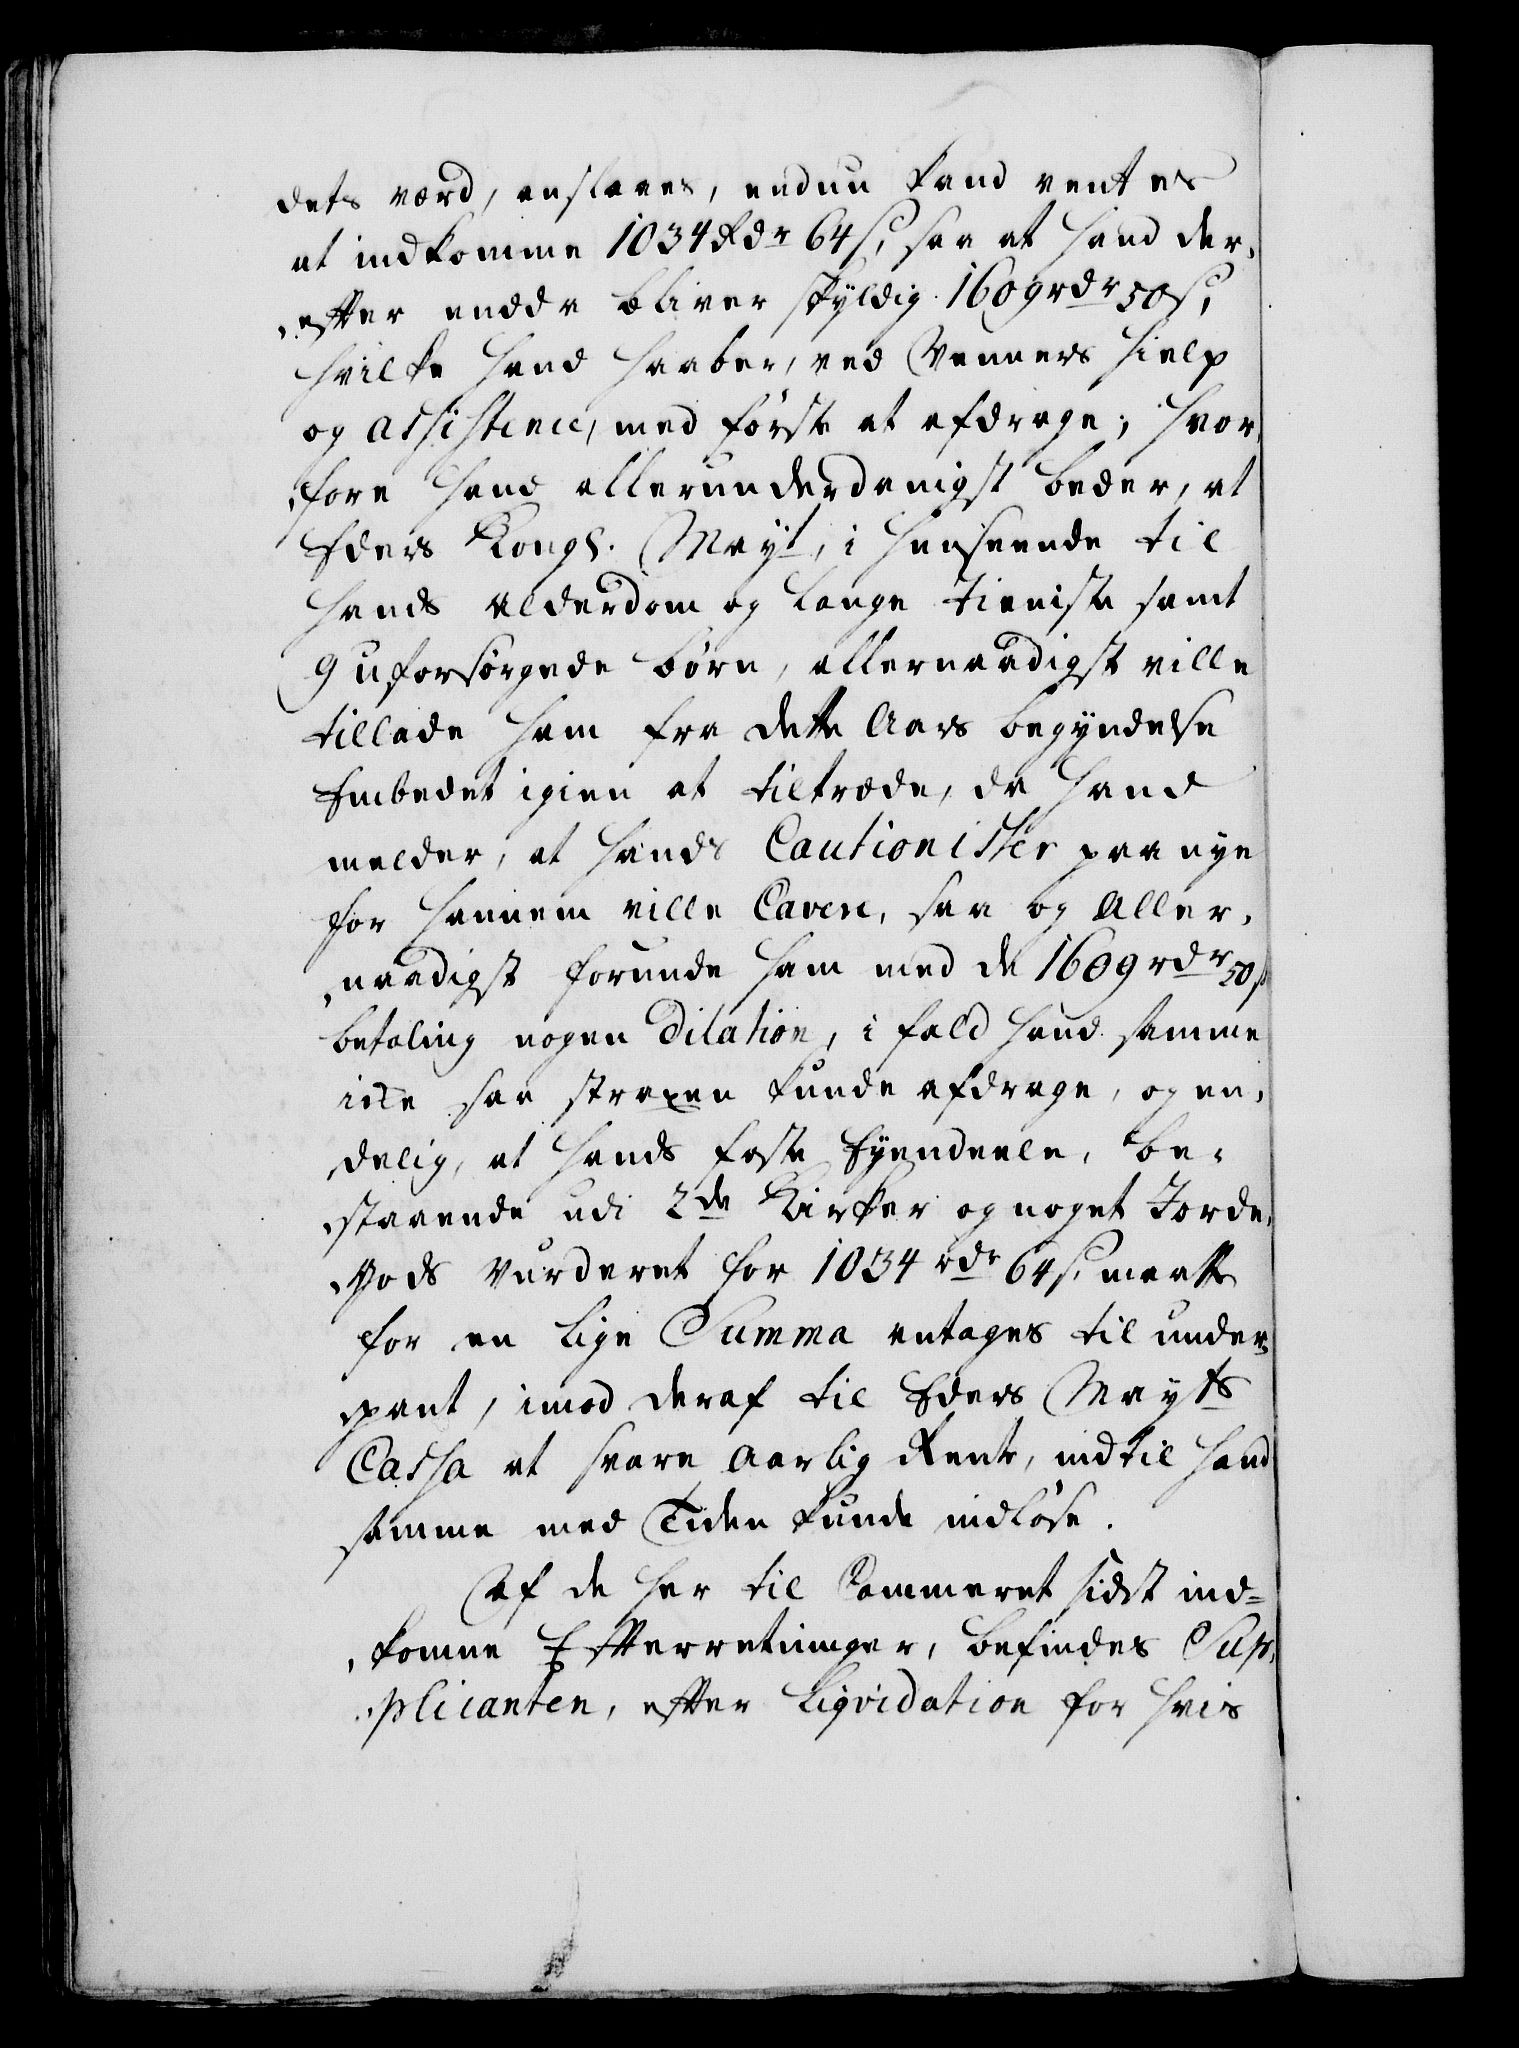 dets værd, anslaaes, endnu kand ventes
at indkomme 1034 Rdr 64 s, saa at hand der„
„efter endda bliver skyldig 1609 rdr 50 s,
hvilke hand haaber, ved Venners hielp
og assistence, med første at afdrage; hvor„
„fore hand allerunderdanigst beder, at
Eders Kongl. Mayt, i henseende til
hands alderdom og lange tieniste samt
9 uforsørgede børn, allernaadigst ville
tillade ham fra dette Aars begyndelse
Embedet igien at tiltræde, da hand
melder, at hands Cautionister paa nye
for hannem ville Cavere, saa og Aller„
„naadigst forunde ham med de 1609 rdr 50 s
betaling nogen Dilation, i fald hand samme
icke saa straxen kunde afdrage, og en„
delig, at hands faste Eyendeele, be„
„staaende udi 2de Kirker og noget Jorde„
„Gods vurderet for 1034 rdr 64 s, maatte
for en lige Summa antages til under„
„pant, imod deraf til Eders Mayts
Cassa at svare aarlig Rente, indtil hand
samme med Tiden kunde indløse.
Af de her til Cammeret sidst ind=
„komne Efterretninger, befindes Sup„
„plicanten, efter Liqvidation for hvis